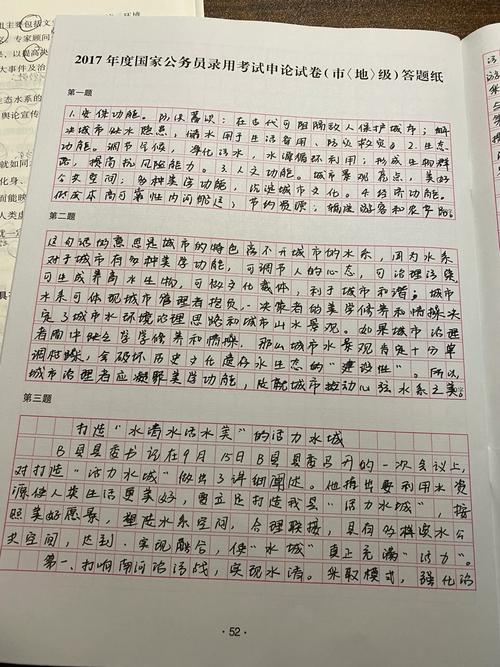 主要包括文
专家顾问
以提高决
大事件及治
生态水系的
舆论宣传
就如同
化身、
而能映
人类虚
就一定
2017年度国家公务员录用考试申论试卷(市〈地〉级)答题纸
第一题
1.安保功能。防洪蓄洪;在古代可阻隔敌人保护城市;解
决城市缺水难点,储水用于生活备用、防灾救灾。2.生态
功能。调节气候,净化污水,水源循环利用;形成生物群
落,提高抗风险能力。3.人文功能。城市景观亮点,美好
公共空间;多种美学功能,促进城市文化。4.经济功能。
低成本高可靠性内河航运;节约资源;输送游客和农产品。
第二题
这句话的意思是城市的特色离不开城市的水系,因为水系
对于城市有多种美学功能,可调节人的心态,可治理污染
可生成养育水生物,可做文化载体,利于城市和谐;城市
水系可体现城市管理者抱负,决策者的美学修养和情操决
定了城市水环境治理思路和城市山水景观。如果城市治理
者闹中缺乏美学修养和情操,那山城市水景观肯定十分单
调很糟,会破坏历史文化遗存水生态的“建设性”。所以,
城市治理者应凝聚美学功能,处能城市拨动心弦水系之美。
第三题
打造“水清水活水美”的活力水城
B县县委书记在9月15日B县县委召开的一次会议上,
对打造“活力水城”做出了详细阐述。他指出要利用水资
源使人类生活更美好,要立足打造我县“活力水城”,按
照美好愿景,塑造水系空间,合理联接,具有多样滨水公
共空间,达到、实现融合,使“水城”真正充满“活力”。
第一、打响隔河治污战,实现水清。采取模式,强化治
·52·